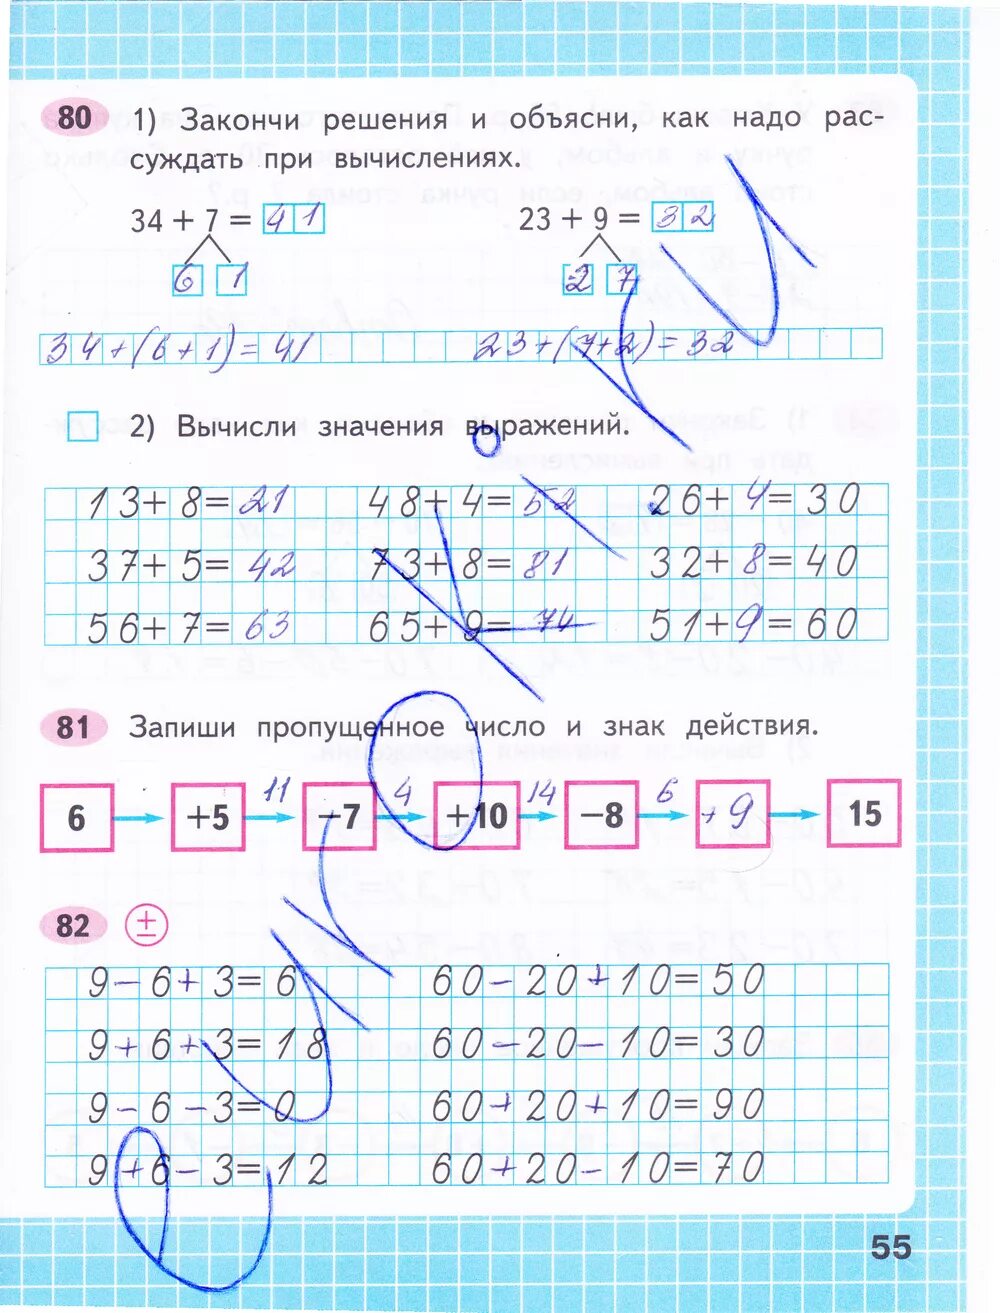 80 1) Закончи решения и объясни, как надо рас-
суждать при вычислениях.
34 + 7 = 41 23 + 9 = 32
6 1 2 7
34+(6+1)=41 23+(7+2)=32
2) Вычисли значения выражений.
13+8=21 48+4=52 26+4=30
37+5=42 73+8=81 32+8=40
56+7=63 65+9=74 51+9=60
81 Запиши пропущенное число и знак действия.
11 4 14 6
6 +5 −7 +10 −8 +9 15
82 ±
9−6+3=6 60−20+10=50
9+6+3=18 60−20−10=30
9−6−3=0 60+20+10=90
9+6−3=12 60+20−10=70
55